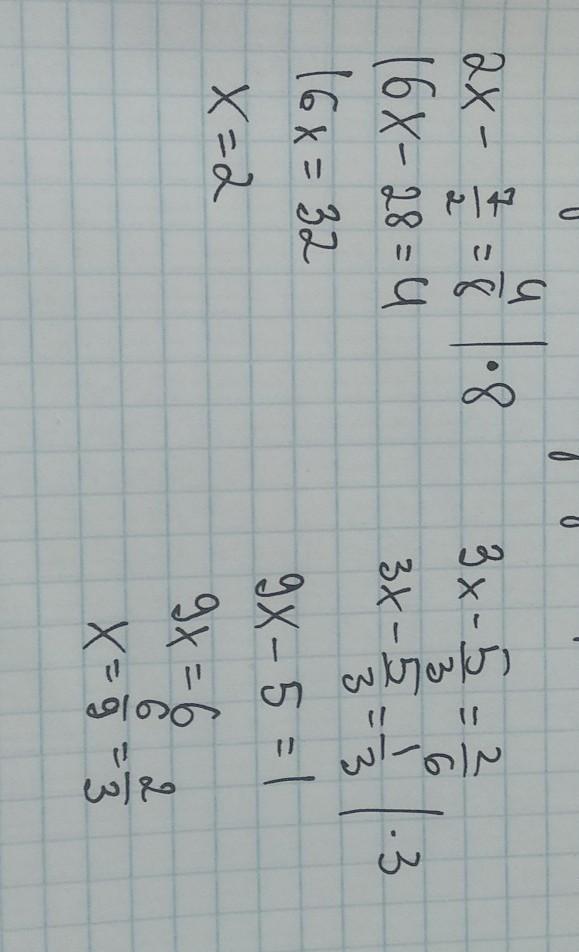 2x - 7/2 = 4/8 | ·8
16x - 28 = 4
16x = 32
x = 2
3x - 5/3 = 2/6
3x - 5/3 = 1/3 | ·3
9x - 5 = 1
9x = 6
x = 6/9 = 2/3